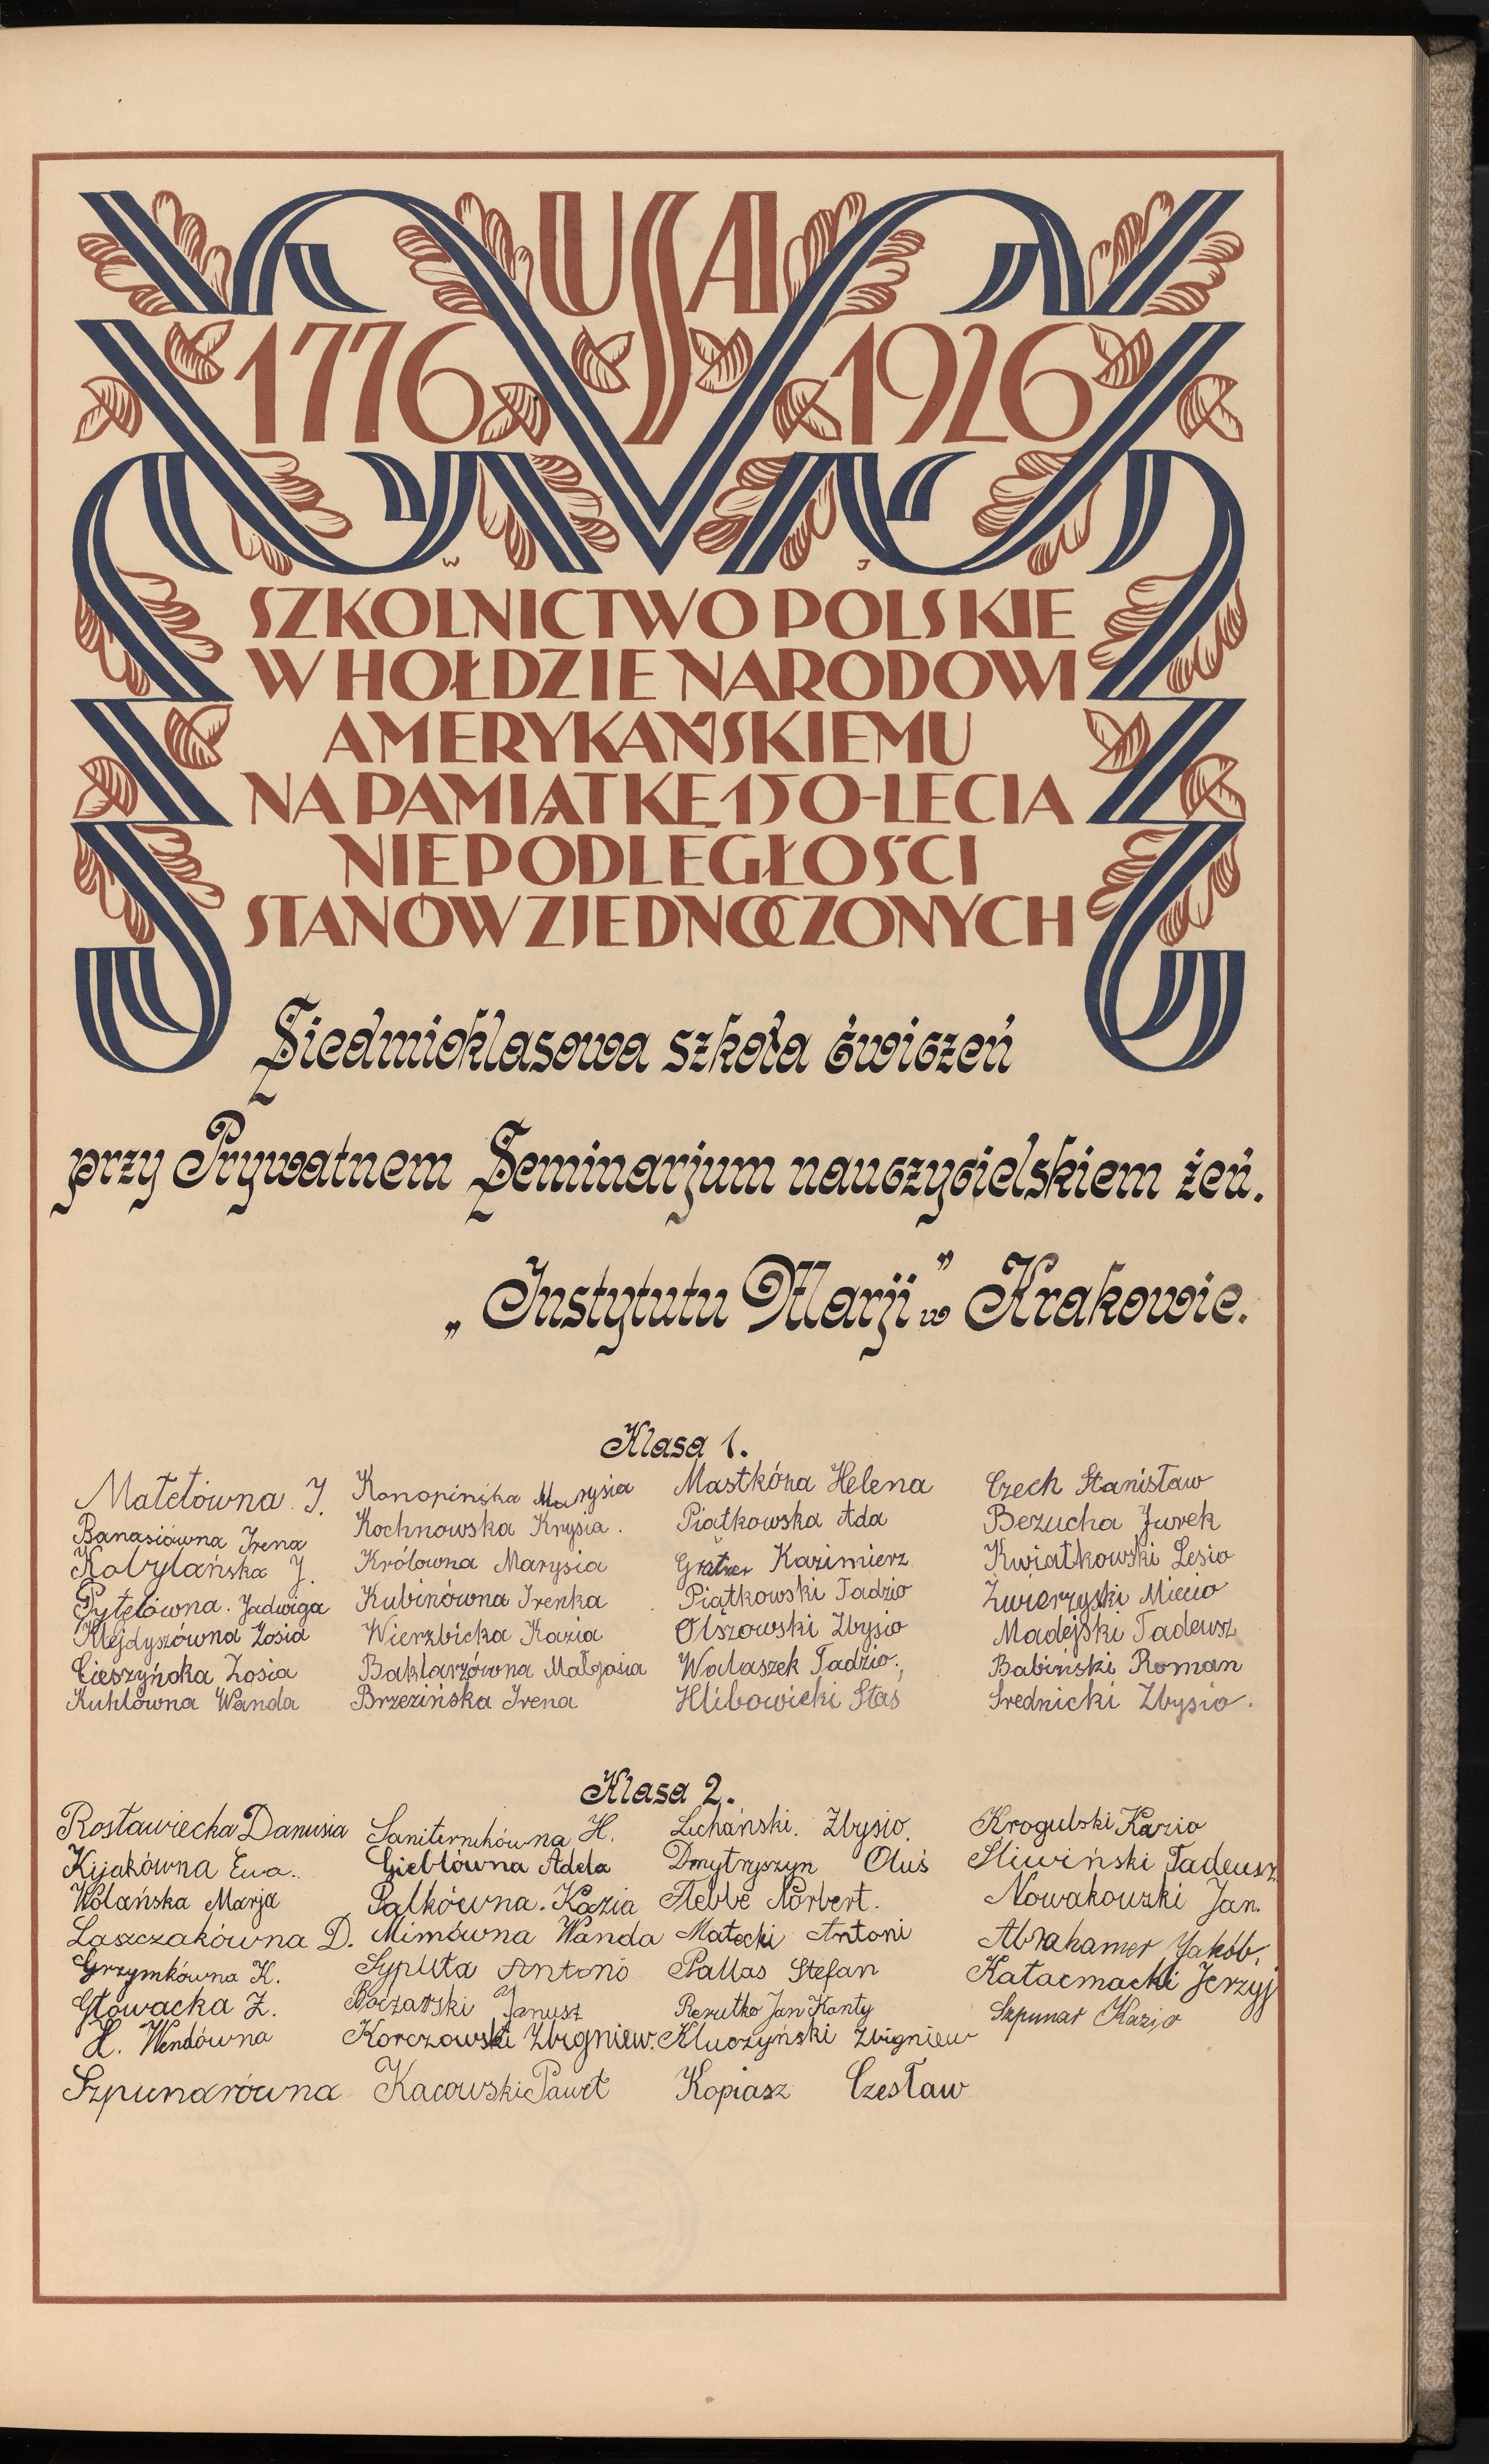 USA
1776 1926
W J
SZKOLNICTWO POLSKIE
W HOŁDZIE NARODOWI
AMERYKAŃSKIEMU
NA PAMIĄTKĘ 150-LECIA
NIEPODLEGŁOŚCI
STANÓW ZJEDNOCZONYCH
Siedmioklasowa szkoła ćwiczeń
przy Prywatnem Seminarjum nauczycielskiem żeń.
„Instytutu Marji" w Krakowie.
Klasa 1.
Matełówna J.
Banasiówna Irena
Kobylańska J.
Pytelówna. Jadwiga
Klejdyszówna Zosia
Cieszyńska Zosia
Kuhlówna Wanda
Konopińska Marysia
Kochnowska Krysia.
Królowna Marysia
Kubinówna Irenka
Wierzbicka Kazia
Baklarzówna Małgosia
Brzezińska Irena
Mastkóna Helena
Piątkowska Ada
Kazimierz
Piątkowski Tadzio
Olszowski Zbysio
Walaszek Tadzio.
Hlibowicki Staś
Czech Stanisław
Bezucha Jurek
Kwiatkowski Lesio
Zwierzyski Miecio
Madejski Tadeusz
Babiński Roman
Srednicki Zbysio.
Klasa 2.
Rosławiecka Danusia
Kijakówna Ewa.
Wolańska Marja
Laszczakówna D.
Grzymkówna K.
Głowacka Z.
H. Wendówna
Szpunarówna
Saniternikówna H.
Gieblówna Adela
Palkówna. Kazia
Mimówna Wanda
Sypuła Antoni
Janusz
Korczowski Zbigniew.
Kacowski Paweł
Lichański. Zbysio.
Dmytryszyn Oluś
Flebbe Norbert.
Małecki Antoni
Pallas Stefan
Rerutko Jan Kanty
Kluczyński Zbigniew
Kopiasz Czesław
Krogulski Kazio
Sliwiński Tadeusz
Nowakowski Jan.
Abrahamer Jakób.
Katacmacki Jerzyj
Szpunar Kazio